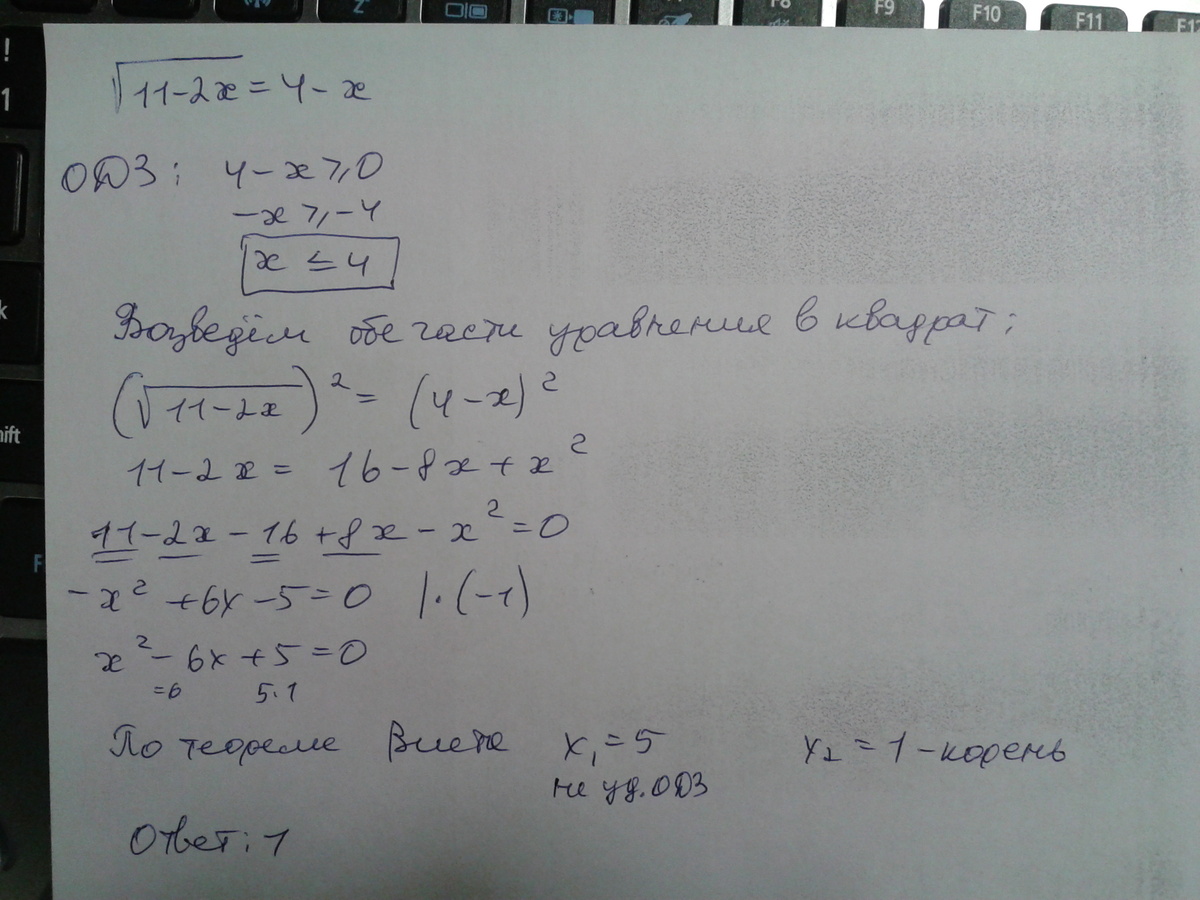 F8 F9 F10 F11 F12
!
1
k
hift
F
√11-2x = 4-x
ОДЗ: 4-x ≥ 0
-x ≥ -4
x ≤ 4
Возведём обе части уравнения в квадрат:
(√11-2x)² = (4-x)²
11-2x = 16-8x+x²
11-2x-16+8x-x²=0
-x²+6x-5=0 |·(-1)
x²-6x+5=0
=6 5·1
По теореме Виета x₁=5 x₂=1-корень
не уд. ОДЗ
Ответ: 1